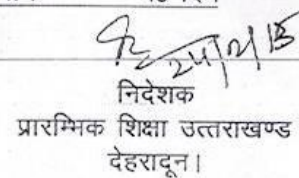 24/2/15
निदेशक
प्रारम्भिक शिक्षा उत्तराखण्ड
देहरादून।